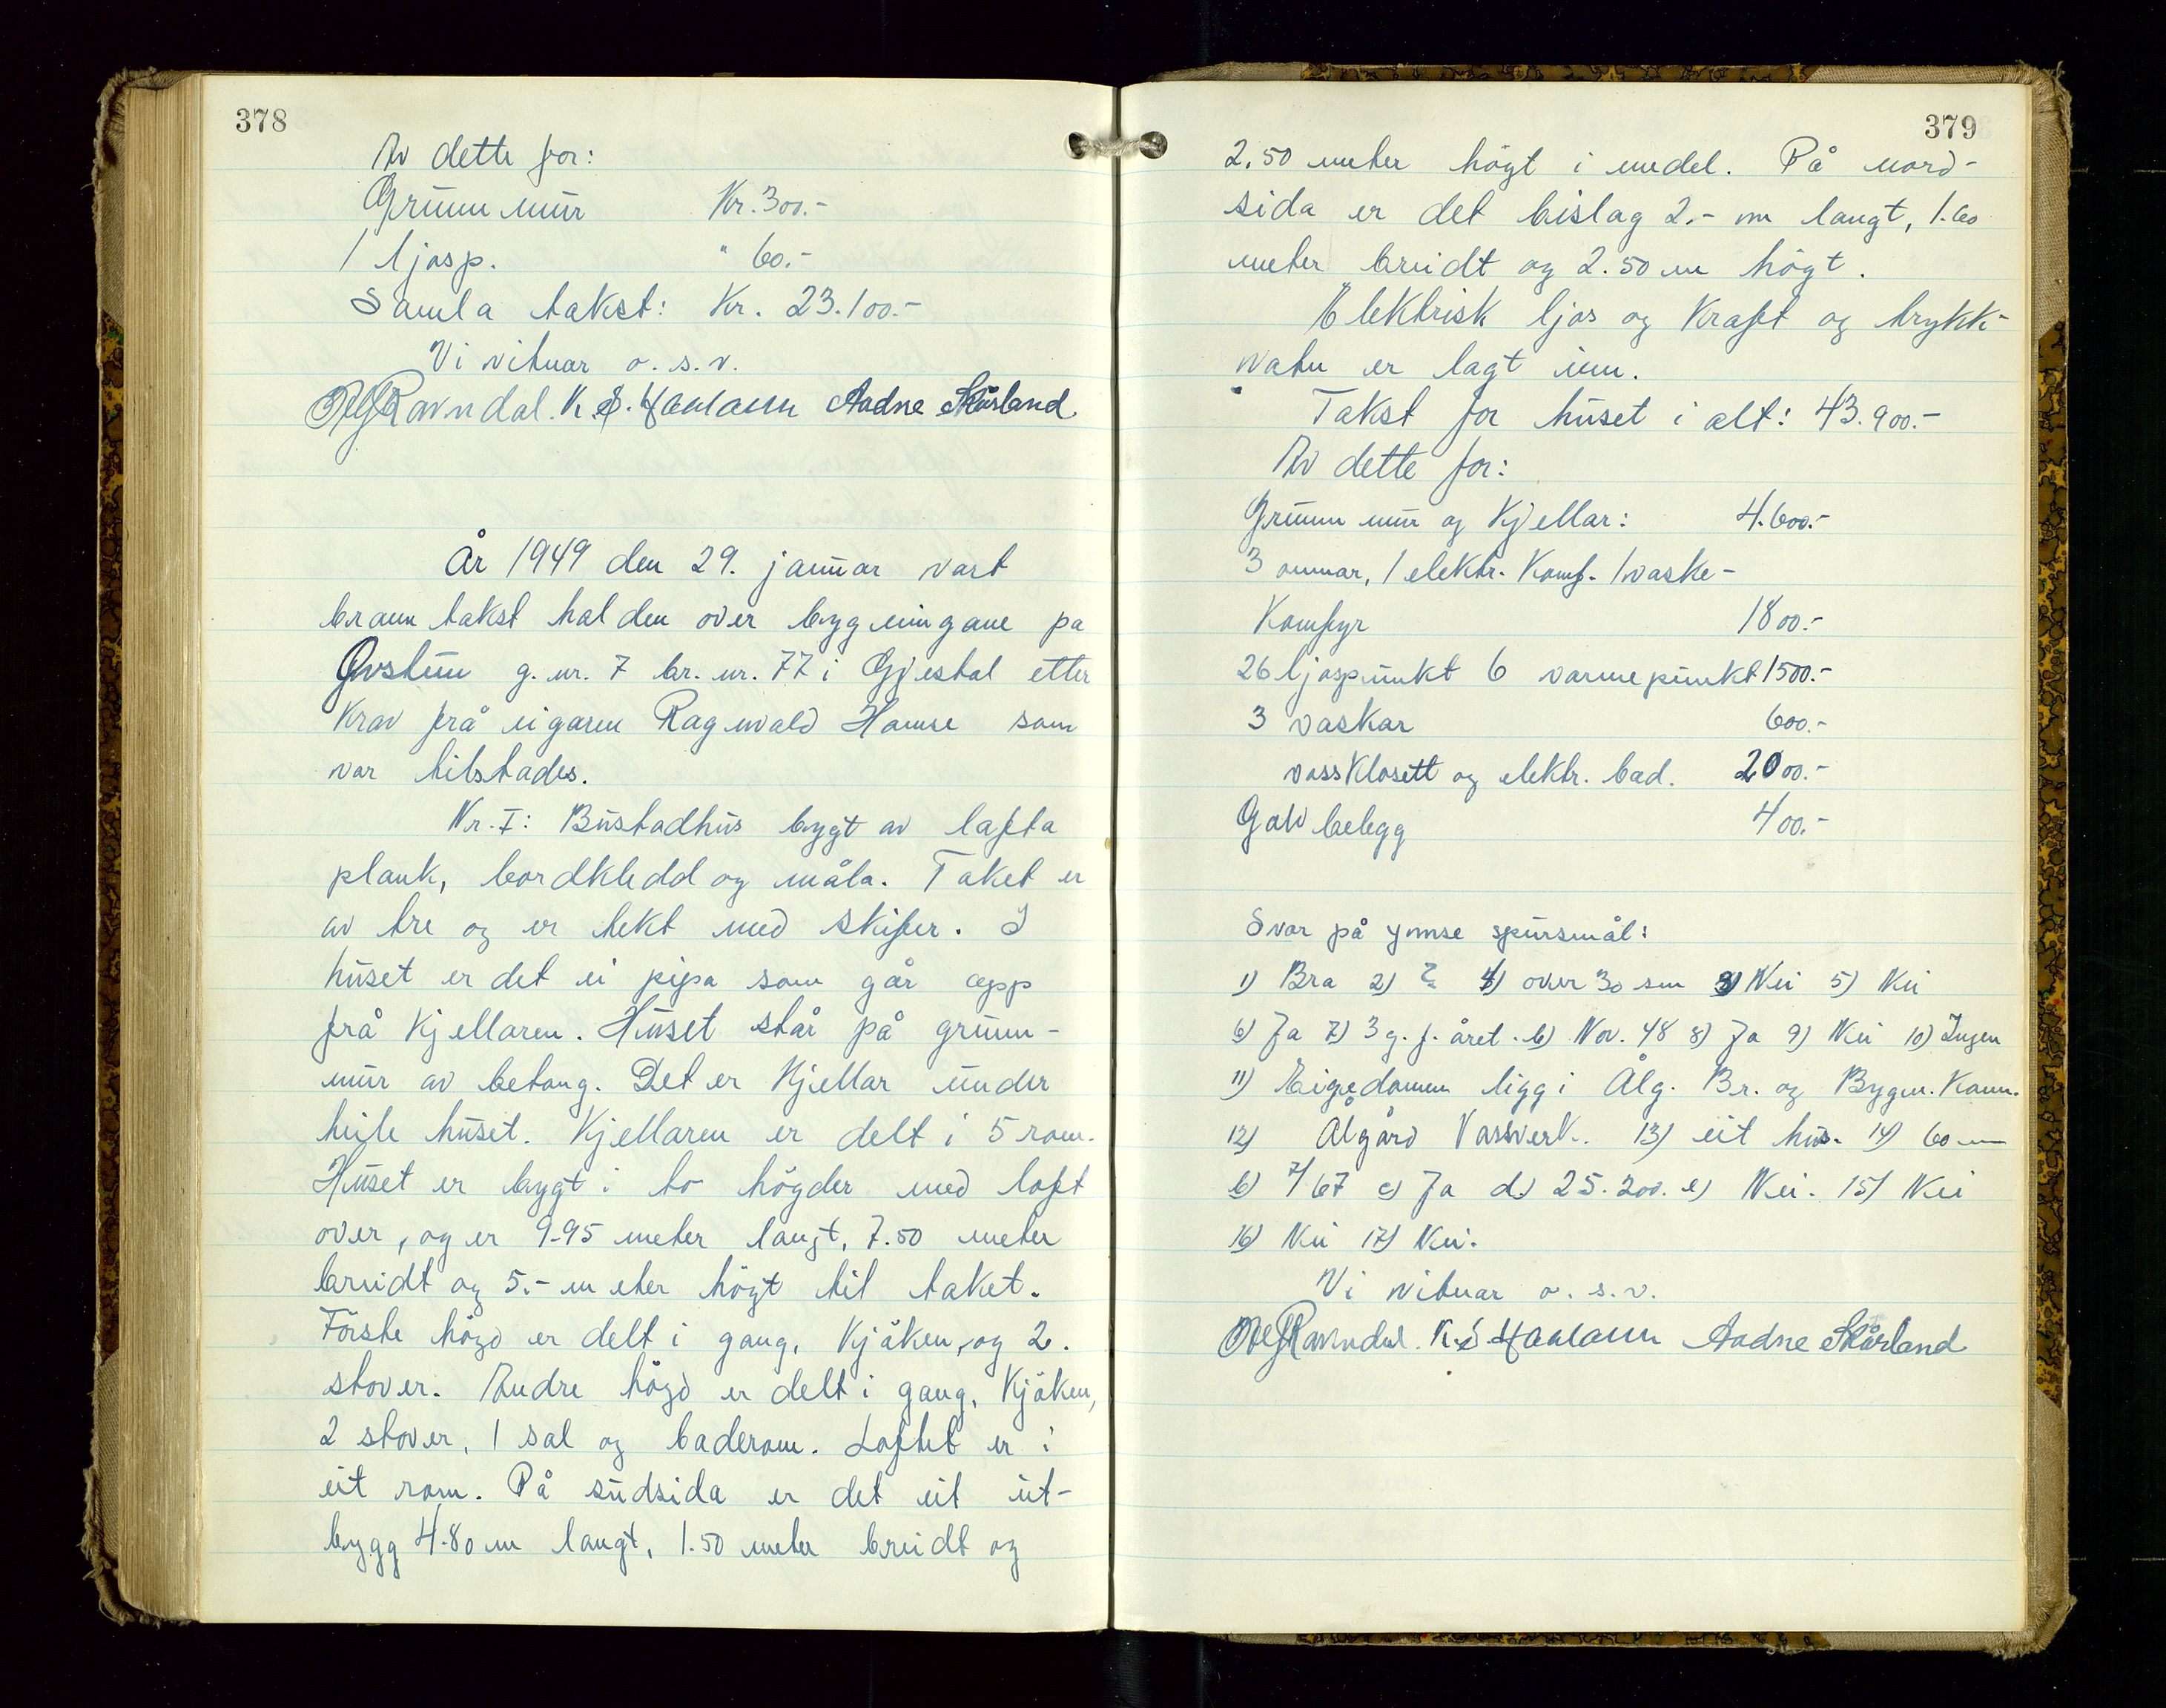 378
Av dette for:
Grunnmur Kr. 300.-
1 ljosp. " 60.-
Samla takst: Kr. 23.100.-
Vi vitnar o. s. v.
Ravndal. K. S. Haaland Aadne Skårland
År 1949 den 29. januar vart
branntakst halden over bygningane på
Øvstun g. nr. 7 br. nr. 77 i Gjestal etter
krav frå eigaren Ragnvald Hamre som
var tilstades.
Nr. I: Bustadhus bygt av lafta
plank, bordkledd og måla. Taket er
av tre og er tekt med skifer. I
huset er det ei pipa som går opp
frå kjellaren. Huset står på grunn-
mur av betong. Det er kjellar under
heile huset. Kjellaren er delt i 5 rom.
Huset er bygt i to högder med loft
over, og er 9.95 meter langt, 7.50 meter
breidt og 5.- meter högt til taket.
Förste högd er delt i gang, kjöken, og 2.
stover. Andre högd er delt i gang, kjöken,
2 stover, 1 sal og baderom. Loftet er i
eit rom. På sudsida er det eit ut-
bygg 4.80 m langt, 1.50 meter breidt og
379
2.50 meter högt i medel. På nord-
sida er det bislag 2.- m langt, 1.60
meter breidt og 2.50 m högt.
Elektrisk ljos og kraft og trykk-
vatn er lagt inn.
Takst for huset i alt: 43.900.-
Av dette for:
Grunnmur og kjellar: 4.600.-
3 omnar, 1 elektr. Komf. 1 vaske-
komfyr 1800.-
26 ljospunkt 6 varmepunkt 1500.-
3 vaskar 600.-
vassklosett og elektr. bad. 2000.-
Golvbelegg 400.-
Svar på ymse spursmål:
1) Bra 2) 4) over 30 sm 3) Nei 5) Nei
6) Ja 7) 3 g. f. året. b) Nov. 48 8) Ja 9) Nei 10) Ingen
11) Eigedomen ligg i Ålg. Br. og Bygn. Komm.
12) Ålgård Vassverk. 13) eit hus. 14) 60 m
b) 7/67 c) Ja d.) 25.200. e) Nei. 15) Nei
16) Nei 17) Nei.
Vi vitnar o. s. v.
Ravndal. K. S. Haaland Aadne Skårland